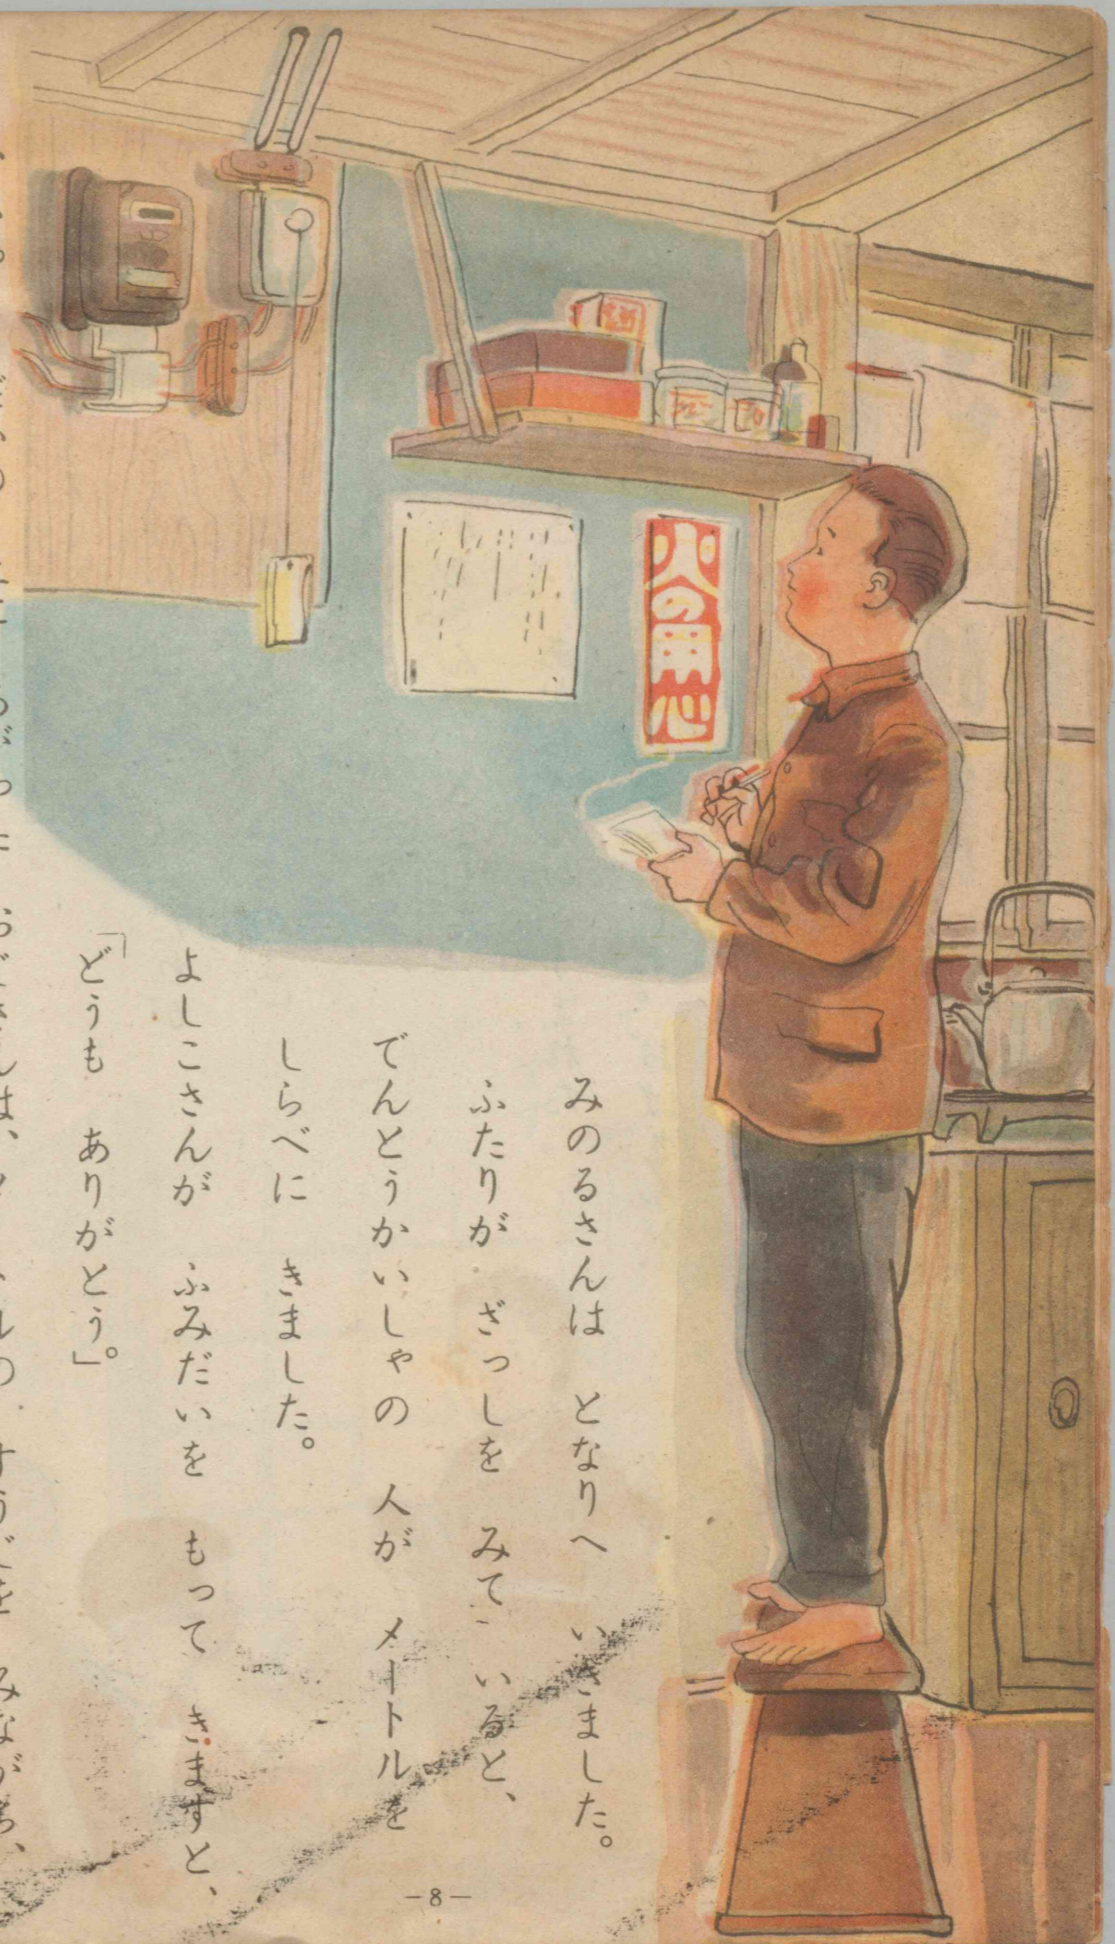 火の用心
みのるさんは　となりへ　いきました。
ふたりが　ざっしを　みて　いると、
でんとうかいしゃの　人が　メートルを
しらべに　きました。
よしこさんが　ふみだいを　もって　きますと、
「どうも　ありがとう。」
—8—